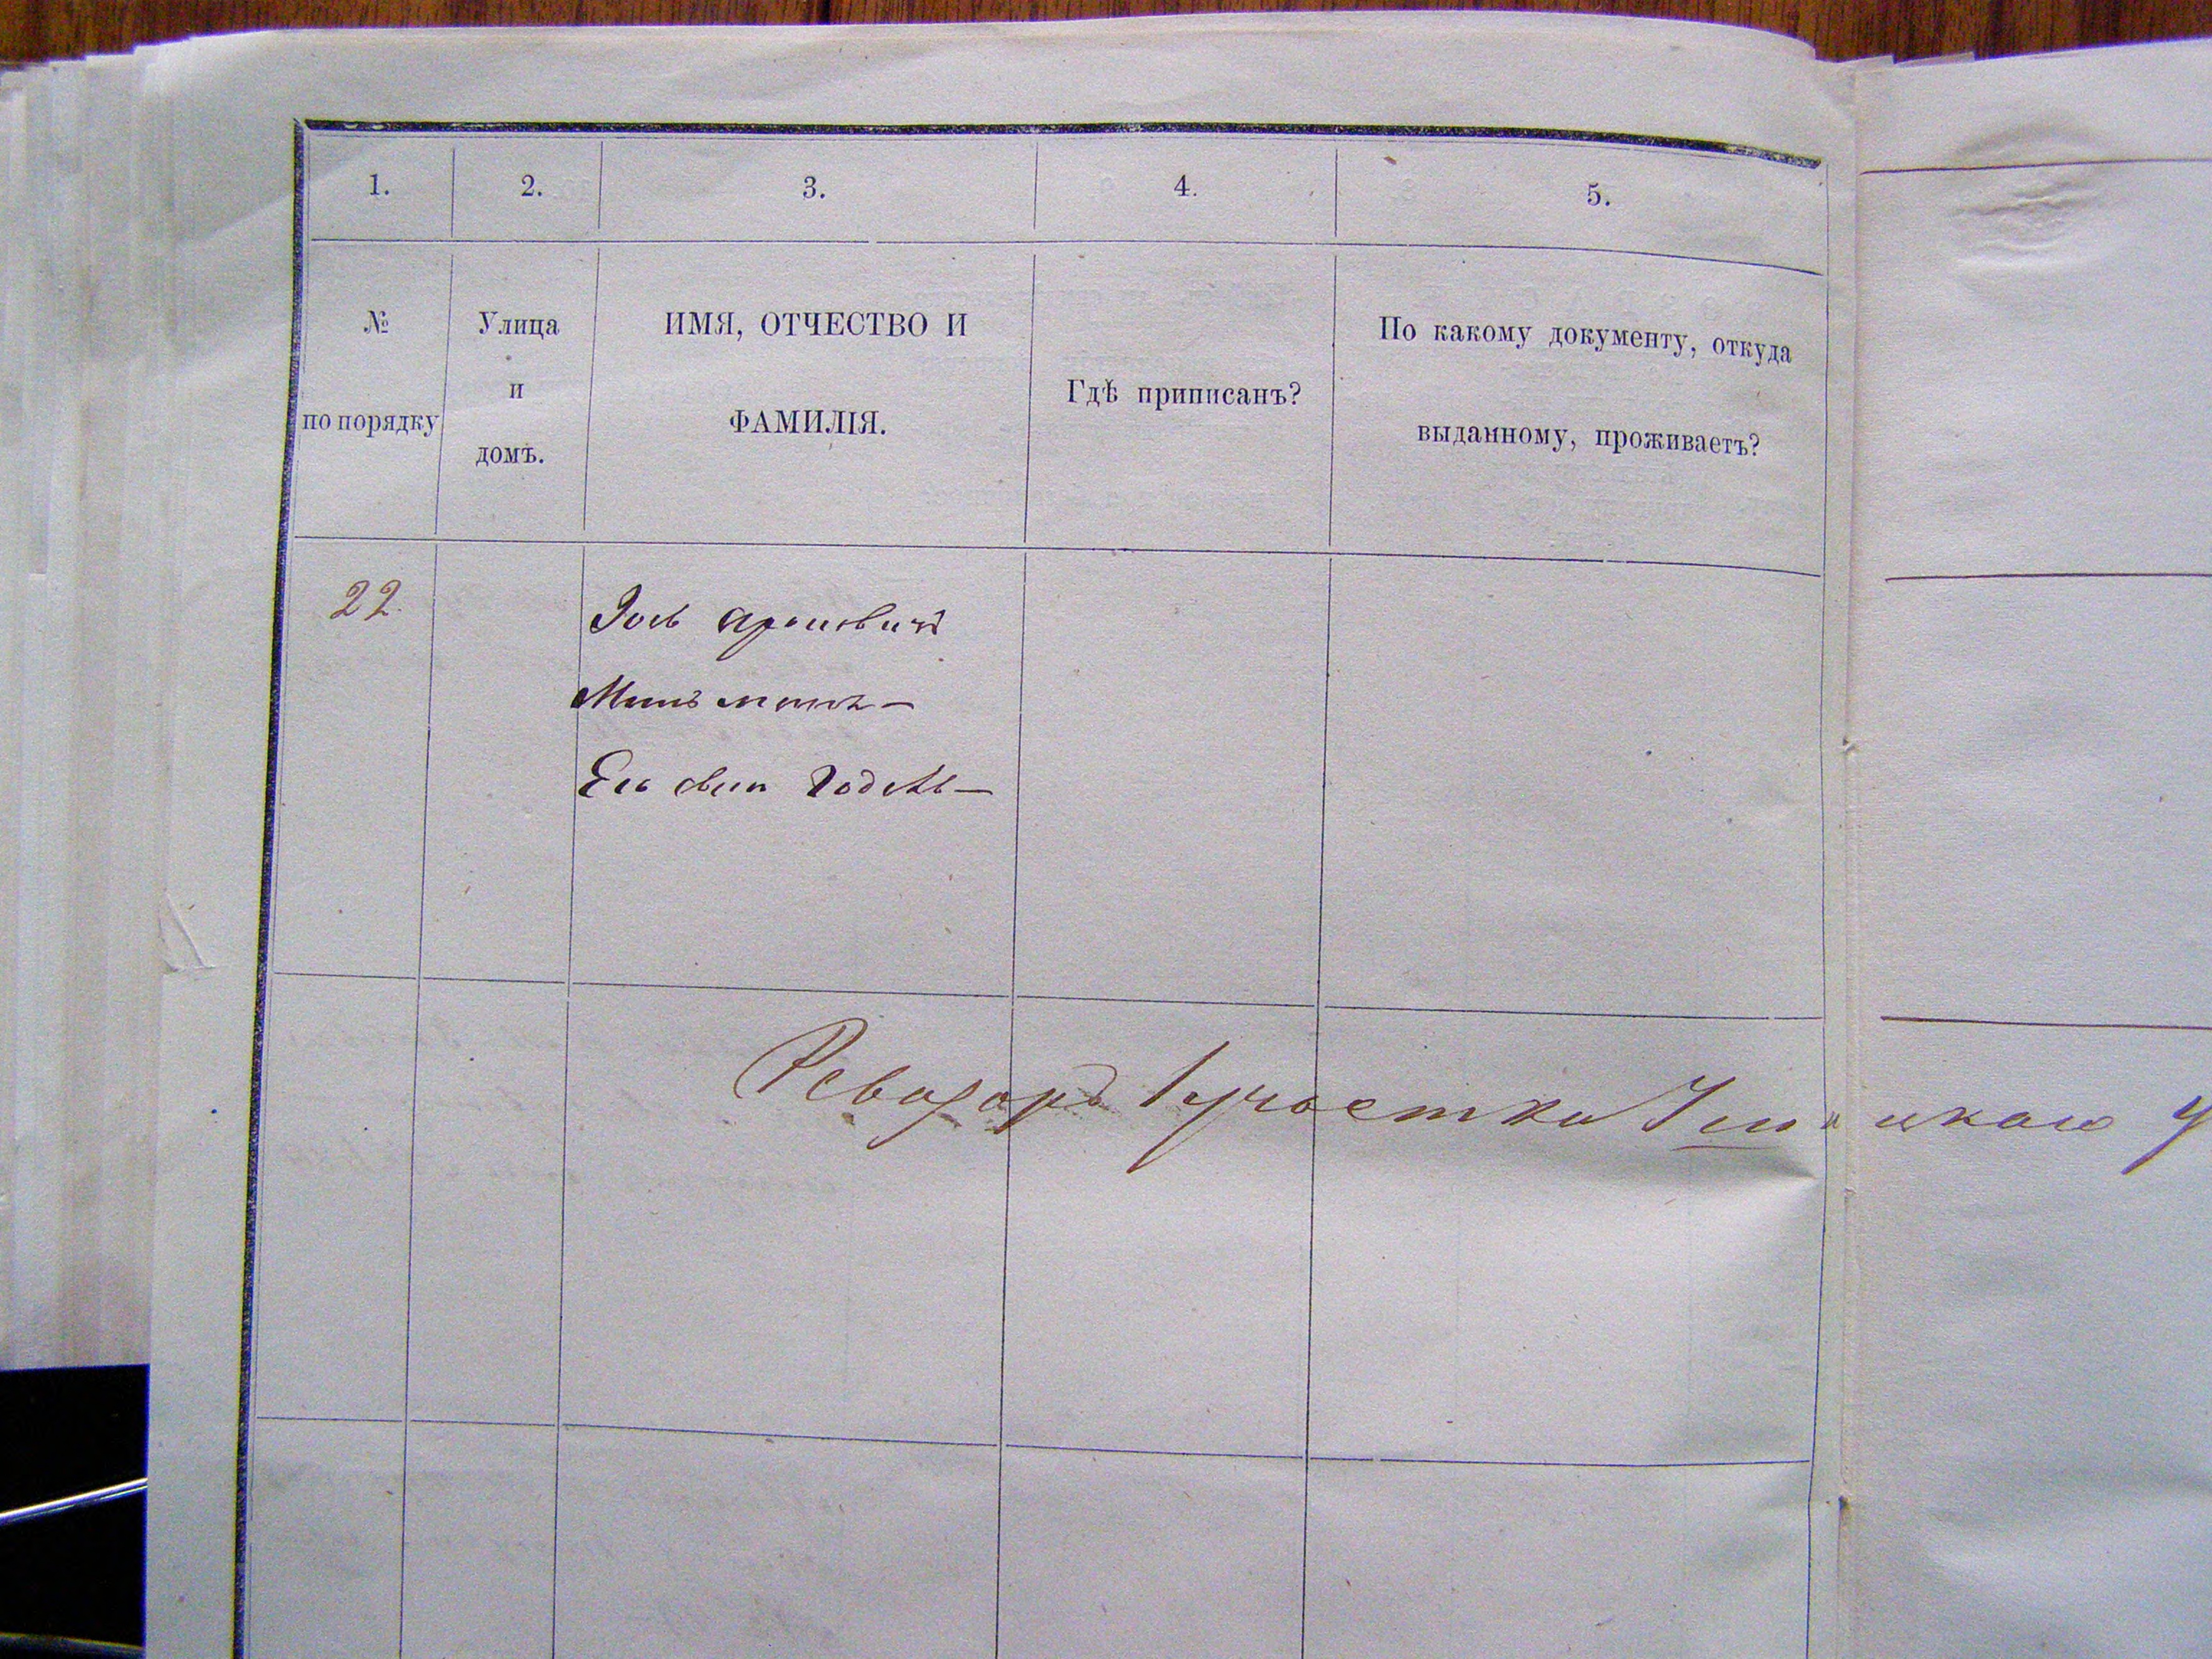 1. 2. 3. 4. 5.
№ по порядку
Улица и домъ.
ИМЯ, ОТЧЕСТВО И
ФАМИЛІЯ.
Гдѣ приписанъ?
По какому документу, откуда
выданному, проживаетъ?
22.
Іось Ароновичъ
Его сынъ Годель —
1 участка